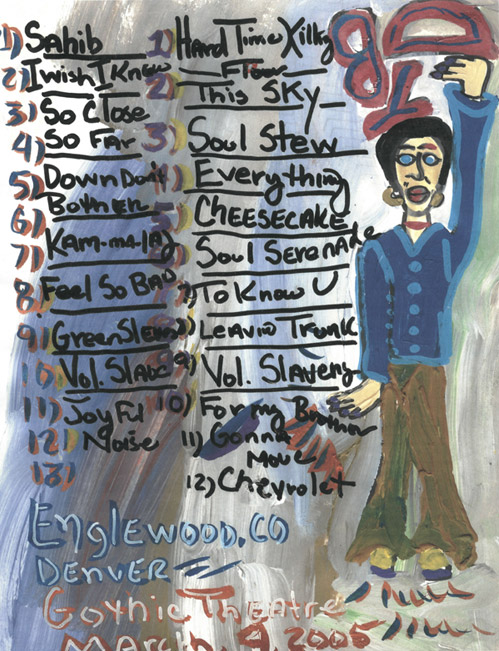 1) Sahib
2) I wish I Knew
3) So Close
4) So Far
5) Down Don't
Bother
6)
7) Kam-ma-lay
8) Feel So Bad
9) Green Sleev
10) Vol. Slave
11) Joyful
12) Noise
13)
1) Hard Time Killing
Floor
2) This Sky
3) Soul Stew
4) Everything
5) CHEESECAKE
6) Soul Serenade
7) To Know U
8) Leavin Trunk
9) Vol. Slavery
10) For my Brother
11) Gonna
Move
12) Chevrolet
Englewood, CO
DENVER
Gothic Theatre
March, 4, 2005